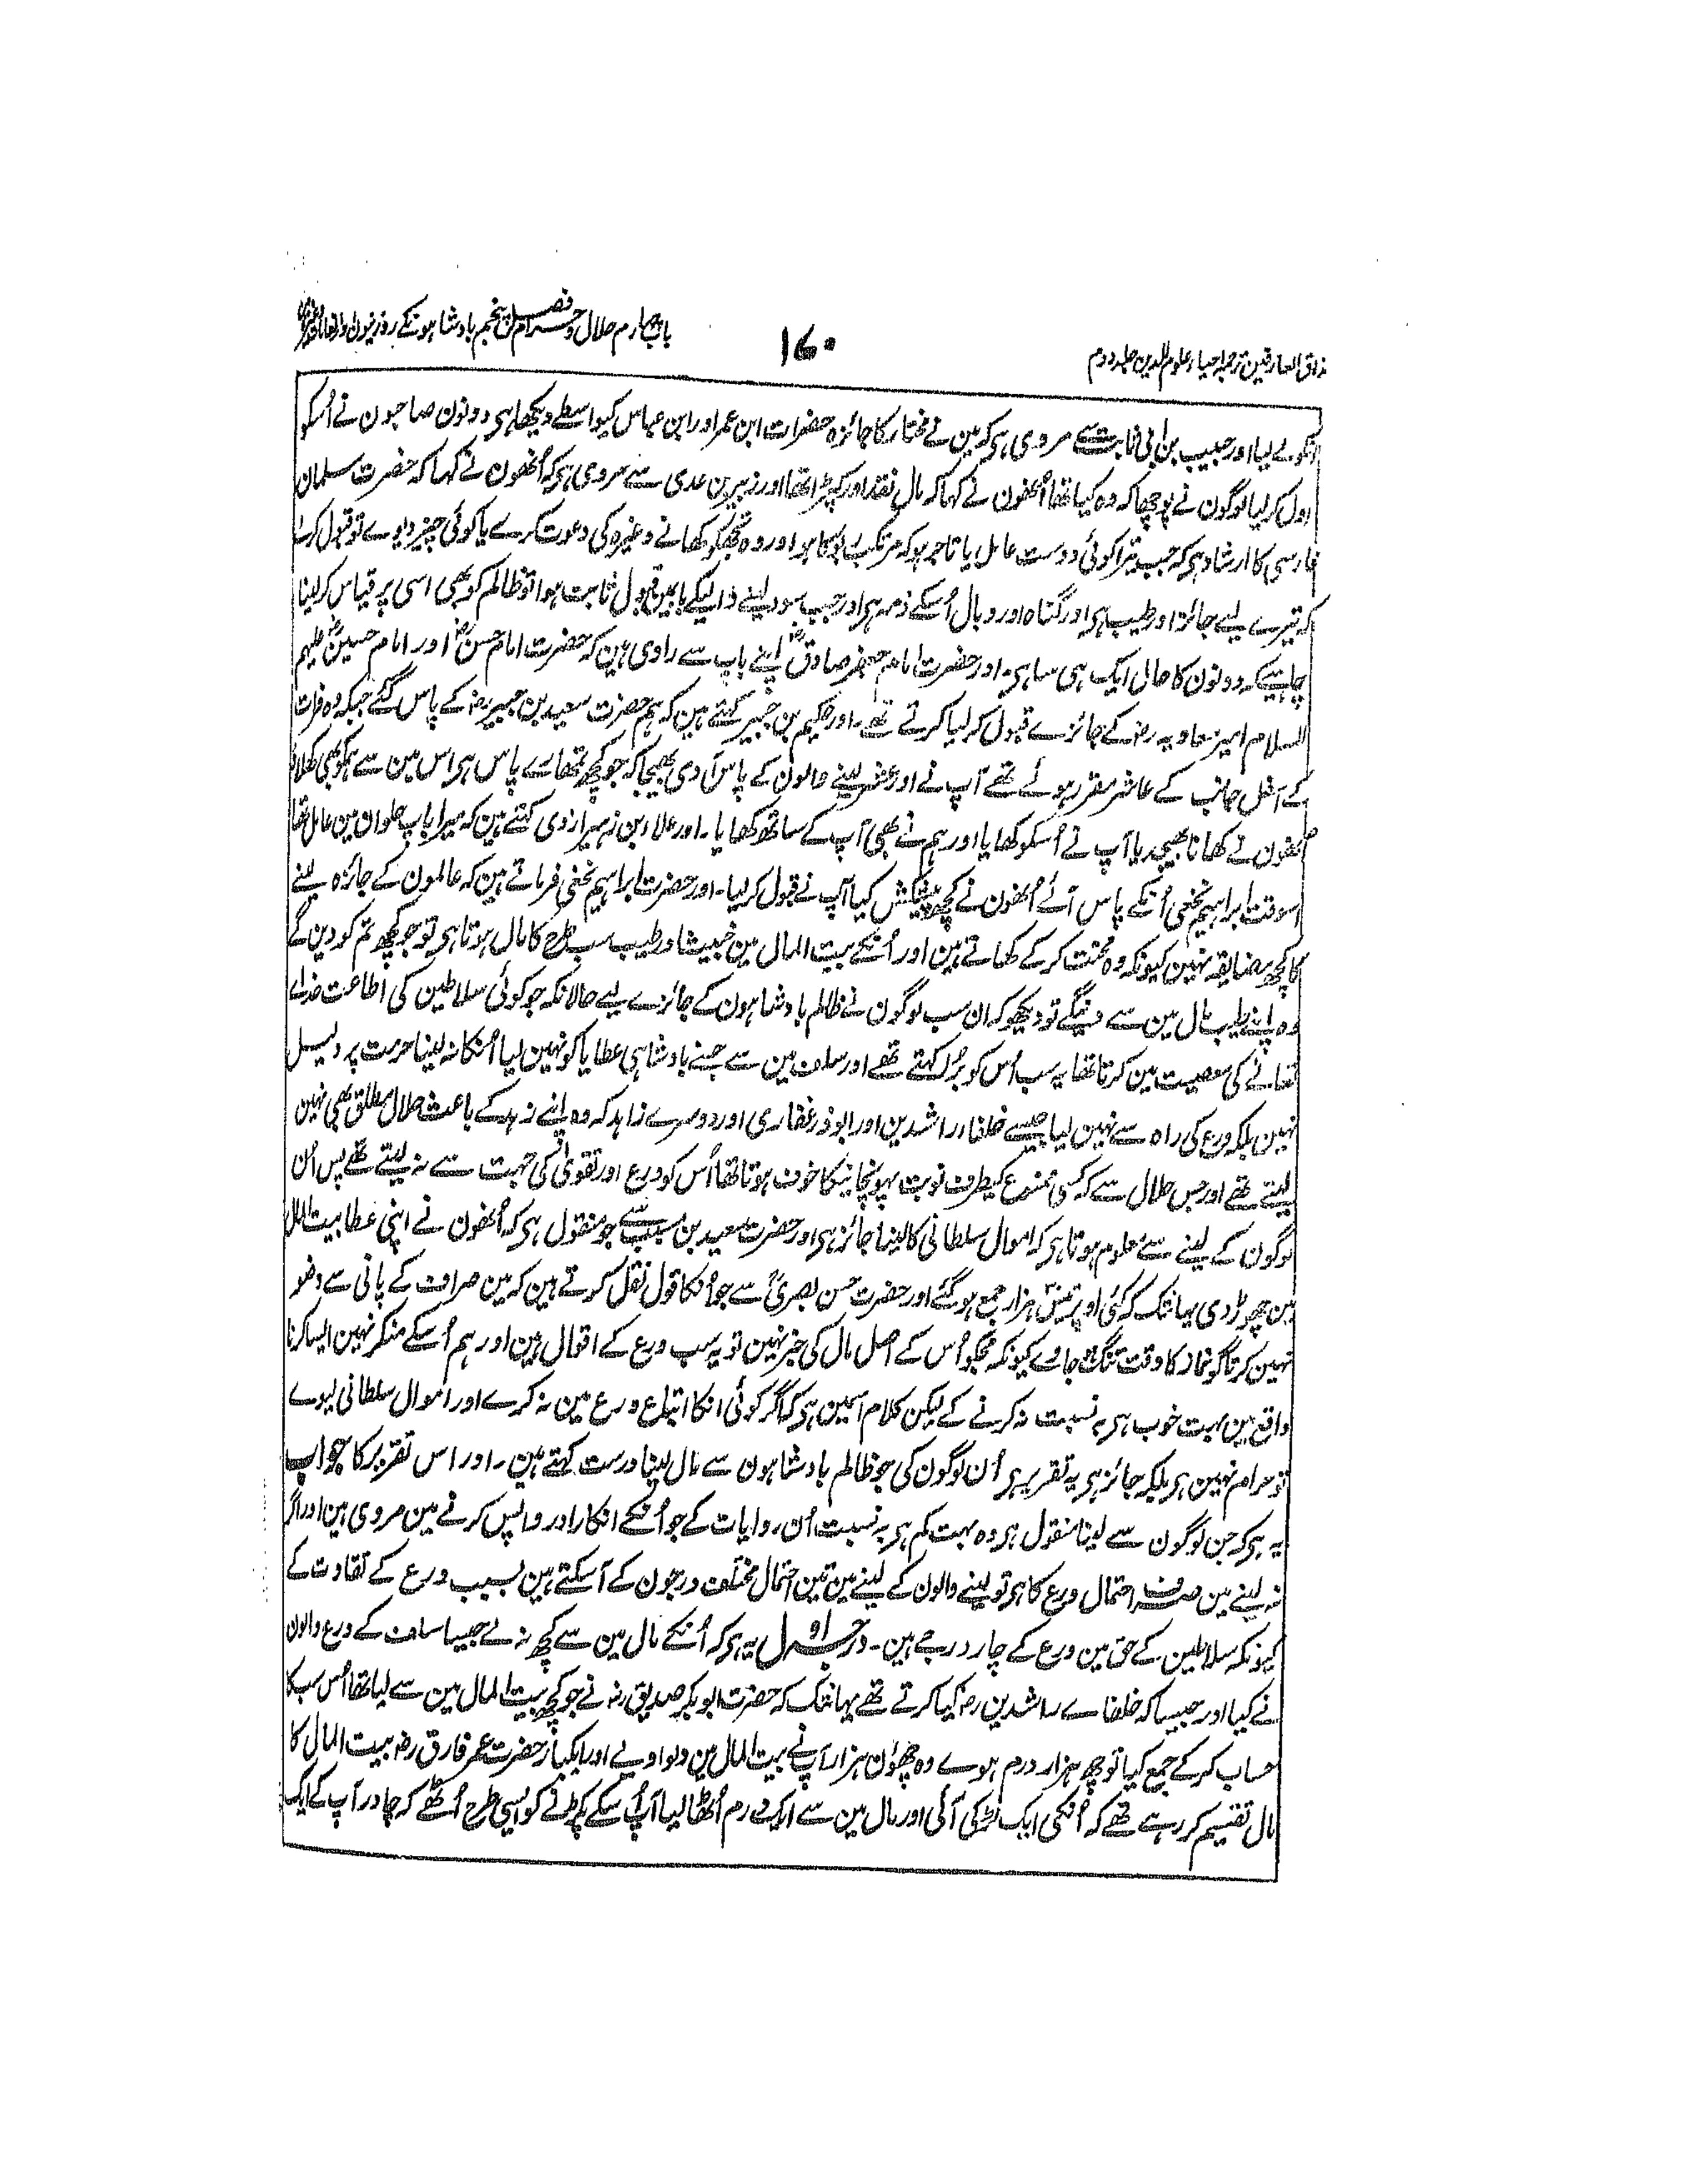 مذاق العارفین ترجمہ احیاء علوم الدین جلد دوم
۱۷۰
باب چہارم حلال و حرام فصل پنجم بادشاہونکے روزینون و
انکو لے لیا اور حبیب بن ابی ثابت سے مروی ہی کہ مین نے مختار کا جائزہ حضرات ابن عمر اور ابن عباس کیواسطے دیکھا ہی دونون صاحبون نے اُسکو
قبول کر لیا لوگون نے پوچھا کہ وہ کیا تھا اُنھون نے کہا کہ مال نقد اور کپڑا تھا اور زبیر بن عدی سے مروی ہی کہ اُنھون نے کہا کہ حضرت سلمان
فارسی کا ارشاد ہی کہ جب تیرا کوئی دوست عامل یا تاجر ہو کہ مرتکب ربوا کا ہو اور وہ تجھکو کھانے وغیرہ کی دعوت کرے یا کوئی چیز دیوے تو قبول کر لے
کہ تیرے لیے جائز اور طیب ہی اور گناہ اور وبال اُسکے ذمہ ہی اور جب سود لینے والیکے باب مین قبول ثابت ہوا تو ظالم کو بھی اسی پر قیاس کر لینا
چاہیے کہ دونون کا حال ایک ہی سا ہی۔ اور حضرت امام جعفر صادقؓ اپنے باپ سے راوی ہین کہ حضرت امام حسنؓ اور امام حسینؓ علیہم
السلام امیر معاویہ رضہ کے جائزے قبول کر لیا کرتے تھے۔ اور حکیم بن جبیر کہتے ہین کہ ہم حضرت سعید بن جبیر رضہ کے پاس گئے جبکہ وہ فرات
کے اسفل جانب کے عاشر مقرر ہوئے تھے آپ نے اور عشر لینے والون کے پاس آدمی بھیجا کہ جو کچھ تمھارے پاس ہی اس مین سے ہمکو بھی کھلاؤ
اُنھون نے کھانا بھیجدیا آپ نے اُسکو کھایا اور ہم نے بھی آپ کے ساتھ کھایا۔ اور علاء بن زہیر ازدی کہتے ہین کہ میرا باپ حلوان مین عامل تھا
اسوقت ابراہیم نخعی اُنکے پاس آئے اُنھون نے کچھ پیشکش کیا آپ نے قبول کر لیا۔ اور حضرت ابراہیم نخعی فرماتے ہین کہ عاملون کے جائزہ لینے
کا کچھ مضایقہ نہین کیونکہ وہ محنت کر کے کھاتے ہین اور اُنکے بیت المال مین خبیث اور طیب سب طرح کا مال ہوتا ہی تو جو کچھ تم کو دین گے
وہ اپنے طیب مال مین سے دینگے تو دیکھو کہ ان سب لوگون نے ظالم بادشاہون کے جائزے لیے حالانکہ جو کوئی سلاطین کی اطاعت خدا
تعالے کی معصیت مین کرتا تھا یہ سب اُس کو بُرا کہتے تھے اور سلف مین سے جنے بادشاہی عطایا کو نہین لیا اُنکا نہ لینا حرمت پر دلیل
نہین بلکہ ورع کی راہ سے نہین لیا جیسے خلفاء راشدین اور ابوذر غفاری اور دوسرے زاہد کہ وہ اپنے زہد کے باعث حلال مطلق بھی نہین
لیتے تھے اور جس حلال سے کہ کسی ممنوع کیطرف نوبت پہونچانیکا خوف ہوتا تھا اُس کو ورع اور تقویٰ کی جہت سے نہ لیتے تھے پس اُن
لوگون کے لینے سے معلوم ہوتا ہی کہ اموال سلطانی کا لینا جائز ہی اور حضرت سعید بن مسیب سے جو منقول ہی کہ اُنھون نے اپنی عطا بیت المال
مین چھوڑ دی یہانتک کہ کئی اوپر تیس ہزار جمع ہو گئے اور حضرت حسن بصریؒ سے جو اُنکا قول نقل کرتے ہین کہ مین صراف کے پانی سے وضو
نہین کرتا گو نماز کا وقت تنگ ہو جاوے کیونکہ مجکو اُس کے اصل مال کی خبر نہین تو یہ سب ورع کے اقوال ہین اور ہم اُسکے منکر نہین ایسا کرنا
واقع مین بہت خوب ہی بہ نسبت نہ کرنے کے لیکن کلام اسمین ہی کہ اگر کوئی انکا اتباع ورع مین نہ کرے اور اموال سلطانی لیوے
تو حرام نہین ہی بلکہ جائز ہی یہ تقریر ہی اُن لوگون کی جو ظالم بادشاہون سے مال لینا درست کہتے ہین۔ اور اس تقریر کا جواب
یہ ہی کہ جن لوگون سے لینا منقول ہی وہ بہت کم ہی بہ نسبت اُن روایات کے جو اُنکے انکار اور واپس کرنے مین مروی ہین اور اگر
نہ لینے مین صرف احتمال ورع کا ہی تو لینے والون کے لینے مین تین احتمال مختلف درجون کے آ سکتے ہین بسبب ورع کے تفاوت کے
کیونکہ سلاطین کے حق مین ورع کے چار درجے ہین۔ درجہ اول یہ ہی کہ اُنکے مال مین سے کچھ نہ لے جیسا سلف کے ورع والون
نے کیا اور جیسا کہ خلفاے راشدین رضہ کیا کرتے تھے یہانتک کہ حضرت ابوبکر صدیق رضہ نے جو کچھ بیت المال مین سے لیا تھا اُس سب کا
حساب کر کے جمع کیا تو چھ ہزار درم ہوے وہ چھؤن ہزار آپ نے بیت المال مین دلوا دیے اور ایکبار حضرت عمر فارق رضہ بیت المال کا
مال تقسیم کر رہے تھے کہ اُنکی ایک لڑکی آئی اور مال مین سے ایک درم اُٹھا لیا آپ اُسکے پکڑنے کو ایسی طرح اُٹھے کہ چادر آپ کے ایک